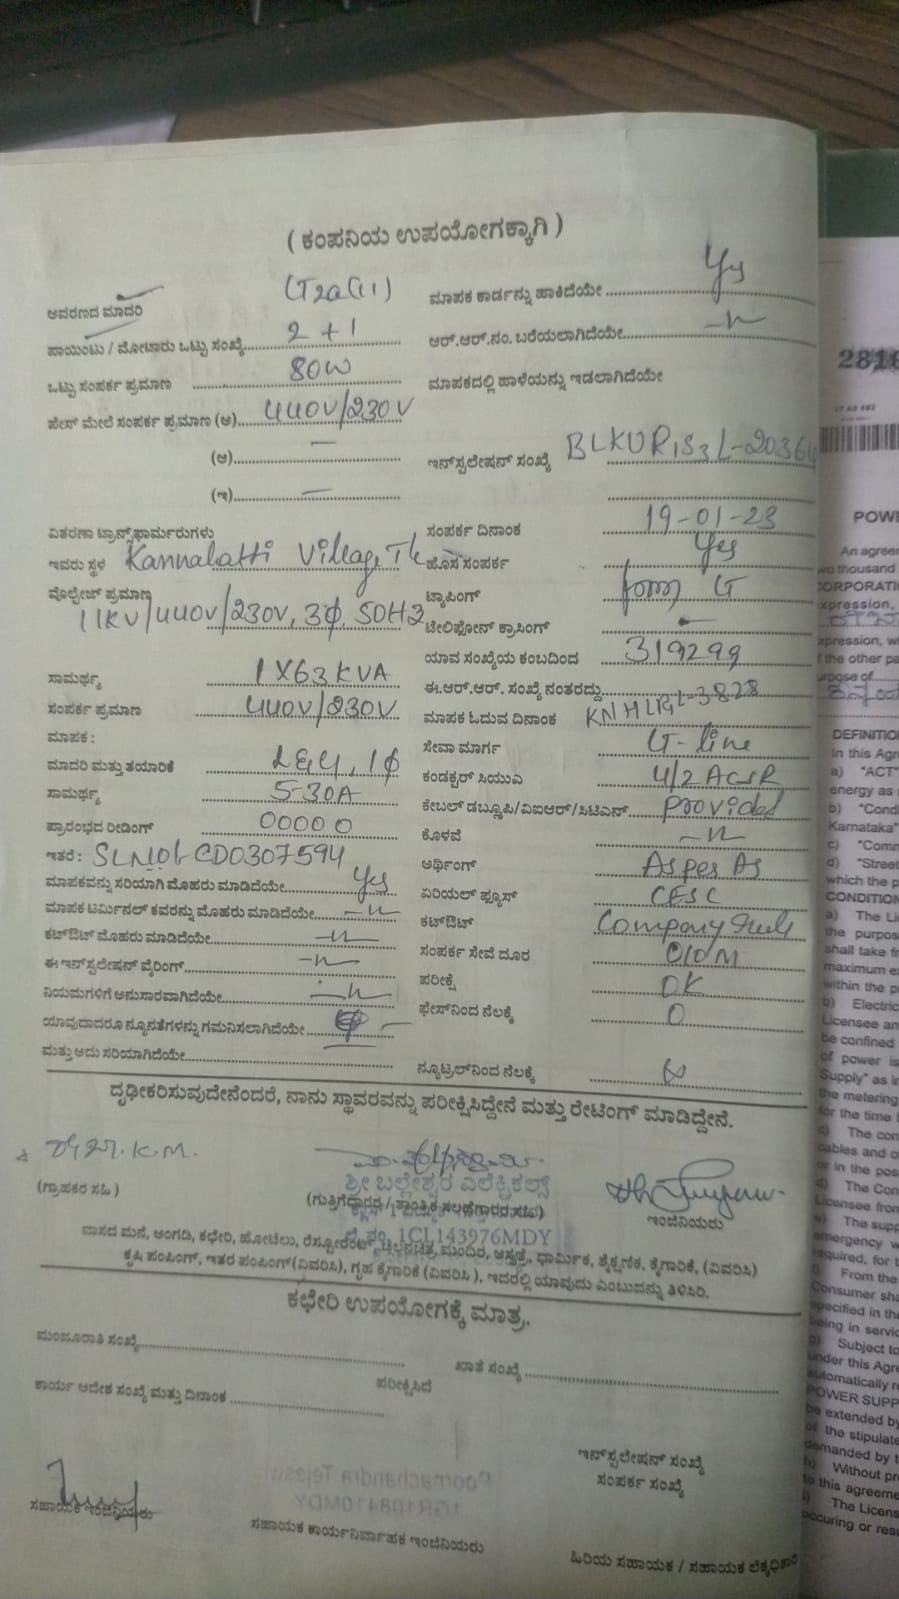 ( ಕಂಪನಿಯ ಉಪಯೋಗಕ್ಕಾಗಿ )
ಆವರಣದ ಮಾದರಿ LT2a(ii)
ಪಾಯಿಂಟು / ಮೋಟಾರು ಒಟ್ಟು ಸಂಖ್ಯೆ 2 + 1
ಒಟ್ಟು ಸಂಪರ್ಕ ಪ್ರಮಾಣ 80W
ಪೇಸ್ ಮೇಲೆ ಸಂಪರ್ಕ ಪ್ರಮಾಣ (ಅ) 440V/230V
(ಆ) —
(ಇ) —
ವಿತರಣಾ ಟ್ರಾನ್ಸ್‌ಫಾರ್ಮರುಗಳು
ಇವರು ಸ್ಥಳ Kannalatti Village
ವೋಲ್ಟೇಜ್ ಪ್ರಮಾಣ
11KV/440V/230V, 3ϕ, 50HZ
ಸಾಮರ್ಥ್ಯ 1X63KVA
ಸಂಪರ್ಕ ಪ್ರಮಾಣ 440V/230V
ಮಾಪಕ :
ಮಾದರಿ ಮತ್ತು ತಯಾರಿಕೆ L&G, 1ϕ
ಸಾಮರ್ಥ್ಯ 5-30A
ಪ್ರಾರಂಭದ ರೀಡಿಂಗ್ 00000
ಇತರೆ : CD0307594
ಮಾಪಕವನ್ನು ಸರಿಯಾಗಿ ಮೊಹರು ಮಾಡಿದೆಯೇ Yes
ಮಾಪಕ ಟರ್ಮಿನಲ್ ಕವರನ್ನು ಮೊಹರು ಮಾಡಿದೆಯೇ —〃—
ಕಟ್‌ಔಟ್ ಮೊಹರು ಮಾಡಿದೆಯೇ —〃—
ಈ ಇನ್‌ಸ್ಟಲೇಷನ್ ವೈರಿಂಗ್ —〃—
ನಿಯಮಗಳಿಗೆ ಅನುಸಾರವಾಗಿದೆಯೇ —〃—
ಯಾವುದಾದರೂ ನ್ಯೂನತೆಗಳನ್ನು ಗಮನಿಸಲಾಗಿದೆಯೇ
ಮತ್ತು ಅದು ಸರಿಯಾಗಿದೆಯೇ
ಮಾಪಕ ಕಾರ್ಡನ್ನು ಹಾಕಿದೆಯೇ Yes
ಆರ್.ಆರ್.ನಂ. ಬರೆಯಲಾಗಿದೆಯೇ —〃—
ಮಾಪಕದಲ್ಲಿ ಹಾಳೆಯನ್ನು ಇಡಲಾಗಿದೆಯೇ
ಇನ್‌ಸ್ಟಲೇಷನ್ ಸಂಖ್ಯೆ
ಸಂಪರ್ಕ ದಿನಾಂಕ 19-01-23
ಹೊಸ ಸಂಪರ್ಕ Yes
ಟ್ಯಾಪಿಂಗ್ from LT
ಟೆಲಿಫೋನ್ ಕ್ರಾಸಿಂಗ್ —
ಯಾವ ಸಂಖ್ಯೆಯ ಕಂಬದಿಂದ 319299
ಈ.ಆರ್.ಆರ್. ಸಂಖ್ಯೆ ನಂತರದ್ದು
ಮಾಪಕ ಓದುವ ದಿನಾಂಕ
ಸೇವಾ ಮಾರ್ಗ LT-line
ಕಂಡಕ್ಟರ್ ಸಿಯುಎ 4/2 ACSR
ಕೇಬಲ್ ಡಬ್ಲ್ಯೂಪಿ/ವಿಐಆರ್/ಸಿಟಿಎಸ್ provided
ಕೊಳವೆ —〃—
ಅರ್ಥಿಂಗ್ As per As
ಏರಿಯಲ್ ಫ್ಯೂಸ್ CESC
ಕಟ್‌ಔಟ್ Company
ಸಂಪರ್ಕ ಸೇವೆ ದೂರ 010M
ಪರೀಕ್ಷೆ OK
ಫೇಸ್‌ನಿಂದ ನೆಲಕ್ಕೆ 0
ನ್ಯೂಟ್ರಲ್‌ನಿಂದ ನೆಲಕ್ಕೆ
ದೃಢೀಕರಿಸುವುದೇನೆಂದರೆ, ನಾನು ಸ್ಥಾವರವನ್ನು ಪರೀಕ್ಷಿಸಿದ್ದೇನೆ ಮತ್ತು ರೇಟಿಂಗ್ ಮಾಡಿದ್ದೇನೆ.
K.M.
(ಗ್ರಾಹಕರ ಸಹಿ )
ಶ್ರೀ ಬಲ್ಲೇಶ್ವರ ಎಲೆಕ್ಟ್ರಿಕಲ್ಸ್
(ಗುತ್ತಿಗೆದಾರರ / ತಾಂತ್ರಿಕ ಸಲಹೆಗಾರರ ಸಹಿ)
1CL143976MDY
ಇಂಜಿನಿಯರು
ವಾಸದ ಮನೆ, ಅಂಗಡಿ, ಕಛೇರಿ, ಹೋಟೆಲು, ರೆಸ್ಟೋರೆಂಟ್, ಚಲನಚಿತ್ರ ಮಂದಿರ, ಆಸ್ಪತ್ರೆ, ಧಾರ್ಮಿಕ, ಶೈಕ್ಷಣಿಕ, ಕೈಗಾರಿಕೆ, (ವಿವರಿಸಿ)
ಕೃಷಿ ಪಂಪಿಂಗ್, ಇತರ ಪಂಪಿಂಗ್(ವಿವರಿಸಿ), ಗೃಹ ಕೈಗಾರಿಕೆ (ವಿವರಿಸಿ ), ಇದರಲ್ಲಿ ಯಾವುದು ಎಂಬುದನ್ನು ತಿಳಿಸಿರಿ.
ಕಛೇರಿ ಉಪಯೋಗಕ್ಕೆ ಮಾತ್ರ.
ಮಂಜೂರಾತಿ ಸಂಖ್ಯೆ
ಖಾತೆ ಸಂಖ್ಯೆ
ಪರೀಕ್ಷಿಸಿದೆ
ಕಾರ್ಯ ಆದೇಶ ಸಂಖ್ಯೆ ಮತ್ತು ದಿನಾಂಕ
ಇನ್‌ಸ್ಟಲೇಷನ್ ಸಂಖ್ಯೆ
ಸಂಪರ್ಕ ಸಂಖ್ಯೆ
ಸಹಾಯಕ ಇಂಜಿನಿಯರು
ಸಹಾಯಕ ಕಾರ್ಯನಿರ್ವಾಹಕ ಇಂಜಿನಿಯರು
ಹಿರಿಯ ಸಹಾಯಕ / ಸಹಾಯಕ ಲೆಕ್ಕಧಿಕಾರಿ
POWE
An agree
CORPORATI
DEFINITIO
In this Agre
a) "ACT"
energy as
b) "Cond
Karnataka"
c) "Comm
d) "Street
which the p
CONDITION
a) The Li
the purpos
shall take f
maximum e
within the p
b) Electric
Licensee an
be confined
of power is
Supply" as i
the metering
for the time
c) The con
cables and o
or in the pos
d) The Con
Licensee from
e) The supp
emergency w
required, for t
f) From the
Consumer sha
specified in the
being in servic
g) Subject to
under this Agre
automatically r
POWER SUPP
be extended by
of the stipulate
demanded by t
h) Without pr
to this agreeme
i) The Licens
occuring or resu